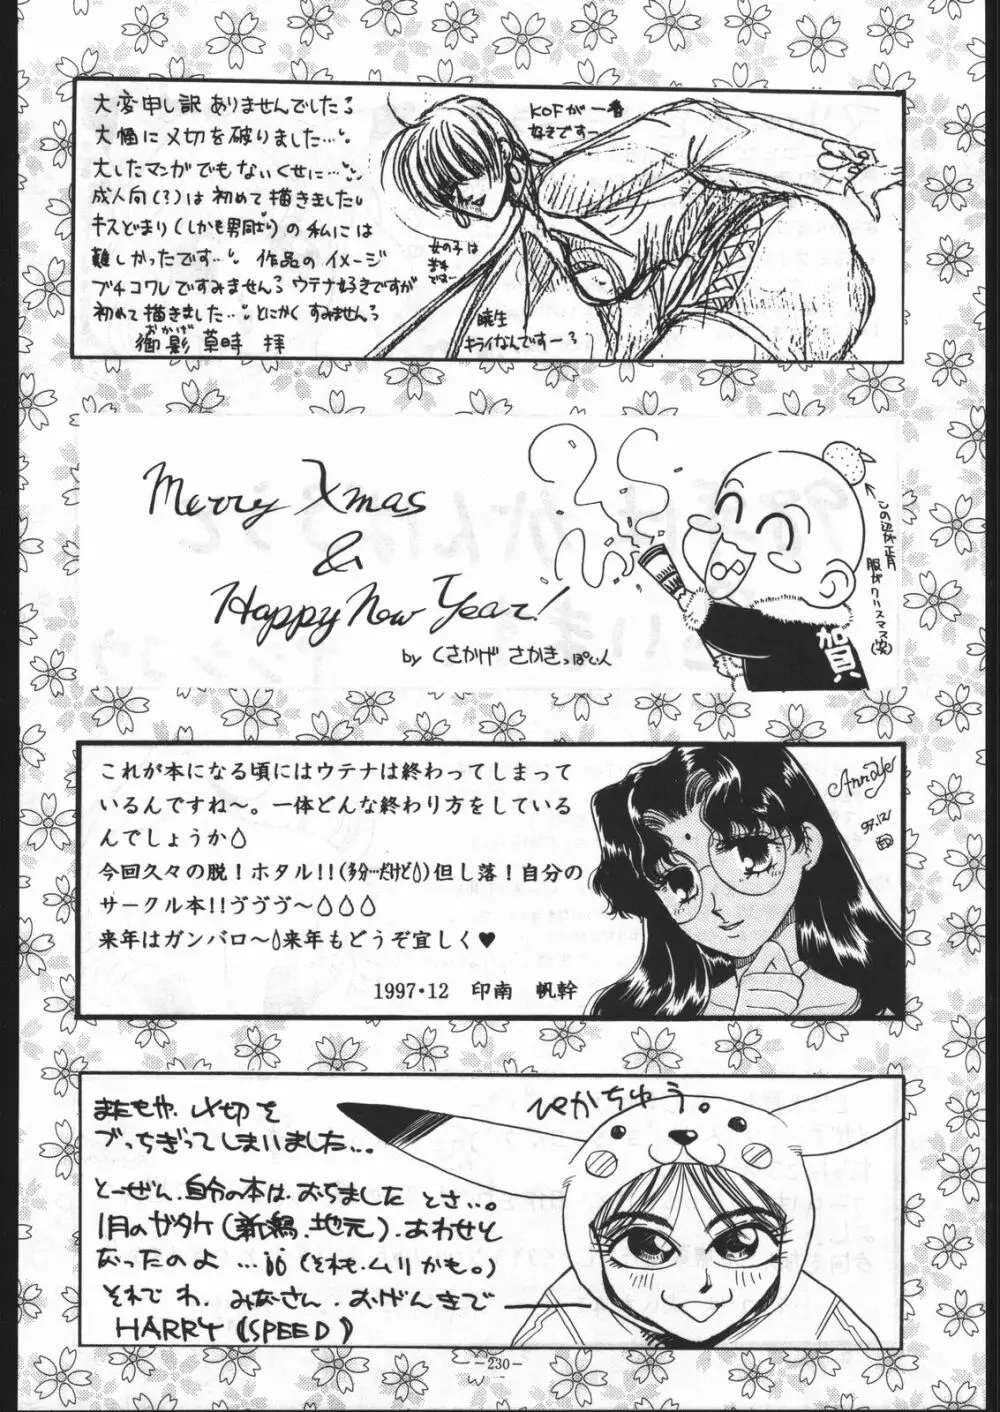 大変申し訳ありませんでした
大幅に〆切を破りました…
大したマンガでもないくせに…
成人向(?)は初めて描きました
キスどまり(しかも男同士)の私には
難しかったです… 作品のイメージ
ブチコワレですみません ウテナ好きですが
初めて描きました… とにかくすみません
影 草時 拝
KOFが一番
好きですー
女の子は
暁生
キライなんですー
Merry Xmas
&
Happy New Year!
by くさかげ さかきっぽいん
この辺正月
服がクリスマス(笑)
賀
これが本になる頃にはウテナは終わってしまって
いるんですね〜。一体どんな終わり方をしている
んでしょうか
今回久々の脱!ホタル!!(多分…だけど)但し落!自分の
サークル本!!ヴヴヴ〜
来年はガンバロ〜来年もどうぞ宜しく♥
1997・12 印南 帆幹
97.12/
ぴかちゅう。
またもや、〆切を
ブッちぎってしまいました…。
とーぜん、自分の本は、おちました とさ…。
1月のガタケ(新潟、地元)、あわせと
なったのよ …(それも、ムリかも。)
それでわ、みなさん、おげんきで
HARRY(SPEED)
-230-